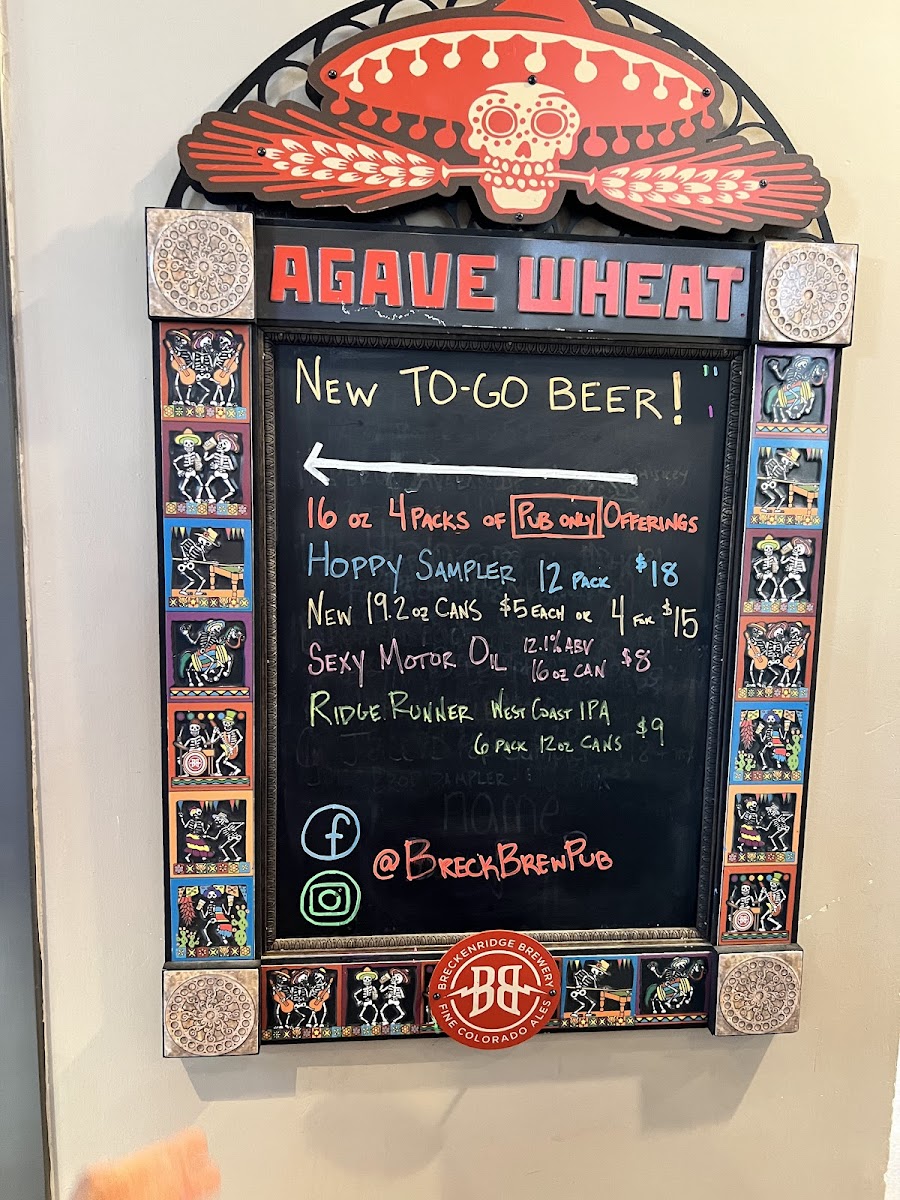 AGAVE WHEAT
NEW TO-GO BEER!
16 OZ 4 PACKS OF PUB ONLY OFFERINGS
HOPPY SAMPLER 12 PACK $18
NEW 19.2 OZ CANS $5 EACH OR 4 FOR $15
SEXY MOTOR OIL 12.1% ABV
16 OZ CAN $8
RIDGE RUNNER WEST COAST IPA
6 PACK 12 OZ CANS $9
name
@BRECKBREWPUB
BRECKENRIDGE BREWERY
BB
FINE COLORADO ALES